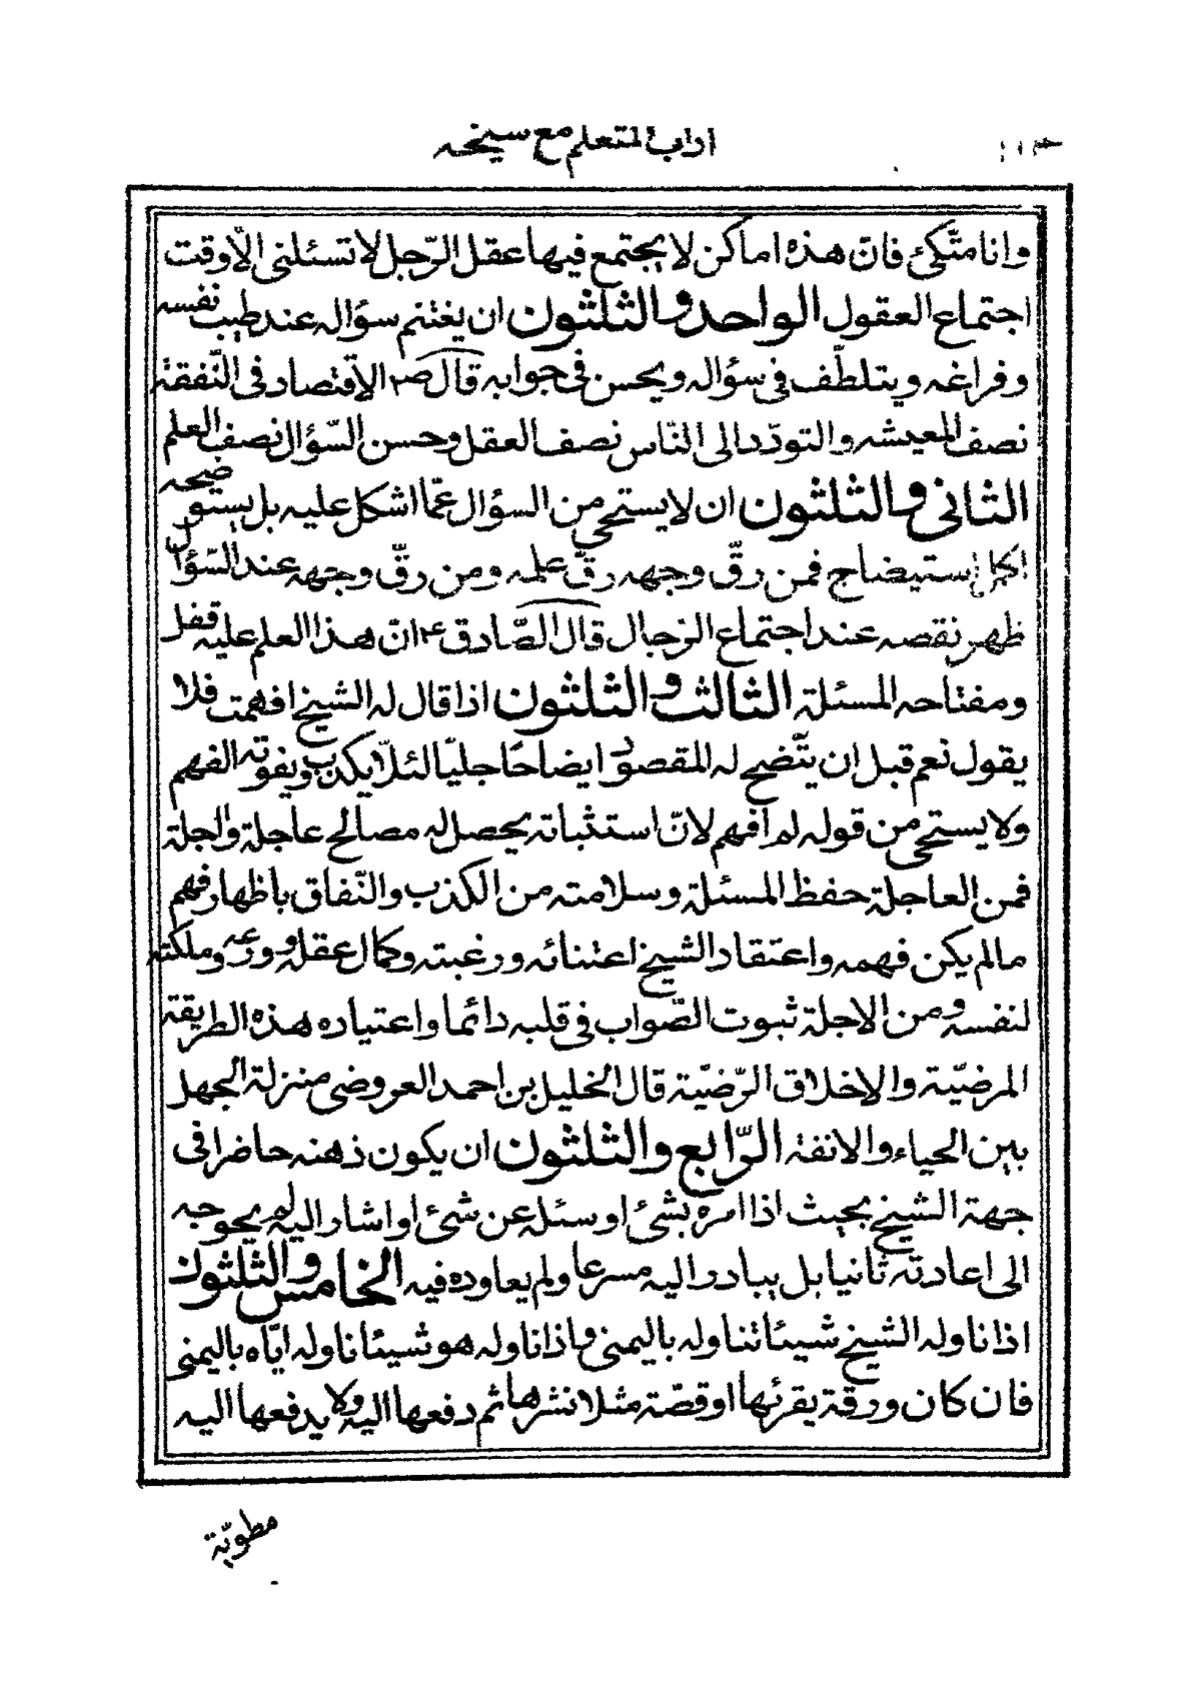 اداب المتعلم مع شيخه
وانا متّكئ فانّ هذه اماكن لا يجتمع فيها عقل الرّجل لا تسئلنى الّا وقت
اجتماع العقول الواحد والثلثون ان يغتنم سؤاله عند طيب نفسه
وفراغه ويتلطّف فى سؤاله ويحسن فى جوابه قال ص الاقتصاد فى النّفقة
نصف المعيشه والتودّد الى النّاس نصف العقل وحسن السّؤال نصف العلم
الثانى والثلثون ان لا يستحيى من السؤال عمّا اشكل عليه بل يستوضحه
اكمل استيضاح فمن رقّ وجهه رقّ علمه ومن رقّ وجهه عند السّؤال
ظهر نقصه عند اجتماع الرجال قال الصّادق ع انّ هذا العلم عليه قفل
ومفتاحه المسئلة الثالث والثلثون اذا قال له الشيخ افهمت فلا
يقول نعم قبل ان يتّضح له المقصود ايضاحًا جليّا لئلّا يكذب ويفوته الفهم
ولا يستحيى من قوله لم افهم لانّ استثباته يحصل له مصالح عاجلة واجلة
فمن العاجلة حفظ المسئلة وسلامته من الكذب والنّفاق باظهار فهم
مالم يكن فهمه واعتقاد الشيخ اعتنائه ورغبته وكمال عقله وورعه وملكته
لنفسه ومن الاجلة ثبوت الصّواب فى قلبه دائما واعتياده هذه الطريقة
المرضيّة والاخلاق الرّضيّة قال الخليل بن احمد العروضى منزلة الجهل
بين الحياء والانفة الرّابع والثلثون ان يكون ذهنه حاضرا فى
جهة الشيخ بحيث اذا امره بشئ او سئله عن شئ او اشار اليه لم يحوجه
الى اعادته ثانيا بل يبادر اليه مسرعا ولم يعاوده فيه الخامس والثلثون
اذا ناوله الشيخ شيئا تناوله باليمنى واذا ناوله هو شيئا ناوله ايّاه باليمنى
فان كان ورقة يقرئها او قصّة مثلا نشرها ثم دفعها اليه ولا يدفعها اليه
مطويّة